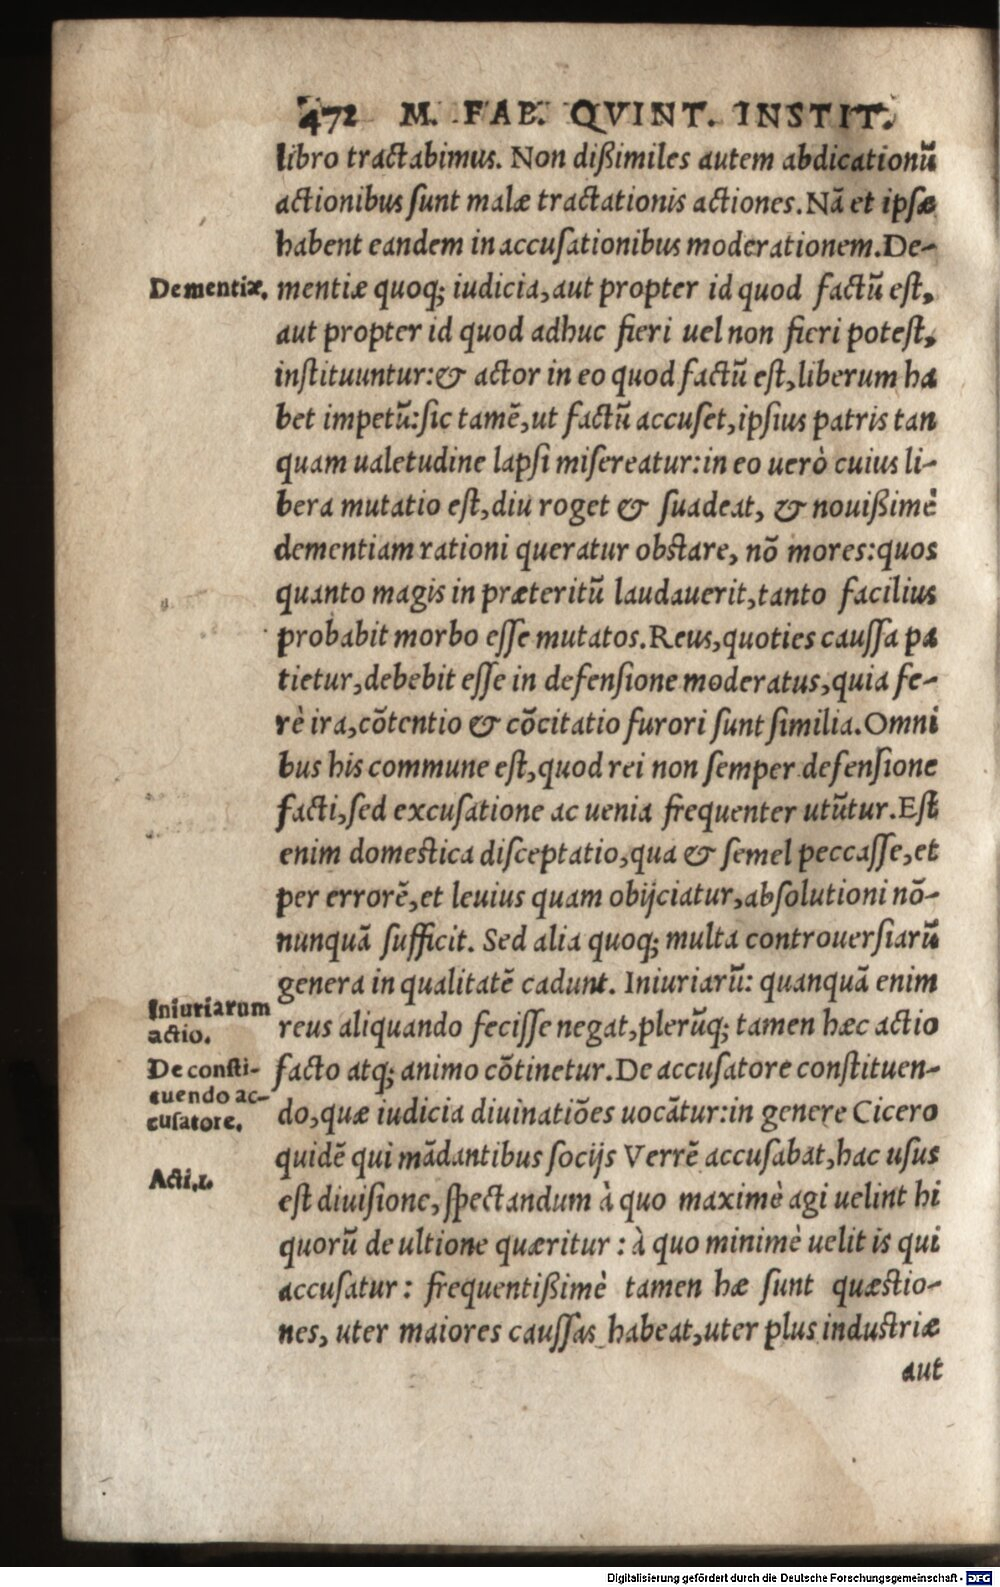 472 M. FAB. QVINT. INSTIT.
libro tractabimus. Non dißimiles autem abdicationũ
actionibus ſunt malæ tractationis actiones. Nã et ipſæ
habent eandem in accuſationibus moderationem. De-
Dementiæ.
mentiæ quoq; iudicia, aut propter id quod factũ eſt,
aut propter id quod adhuc fieri uel non fieri poteſt,
inſtituuntur: & actor in eo quod factũ eſt, liberum ha
bet impetũ: ſic tamẽ, ut factũ accuſet, ipſius patris tan
quam ualetudine lapſi miſereatur: in eo uerò cuius li-
bera mutatio eſt, diu roget & ſuadeat, & nouißimè
dementiam rationi queratur obſtare, nõ mores: quos
quanto magis in præteritũ laudauerit, tanto facilius
probabit morbo eſſe mutatos. Reus, quoties cauſſa pa
tietur, debebit eſſe in defenſione moderatus, quia fe-
rè ira, cõtentio & cõcitatio furori ſunt ſimilia. Omni
bus his commune eſt, quod rei non ſemper defenſione
facti, ſed excuſatione ac uenia frequenter utũtur. Eſt
enim domeſtica diſceptatio, qua & ſemel peccaſſe, et
per errorẽ, et leuius quam obijciatur, abſolutioni nõ-
nunquã ſufficit. Sed alia quoq; multa controuerſiarũ
genera in qualitatẽ cadunt. Iniuriarũ: quanquã enim
Iniuriarum
actio.
reus aliquando feciſſe negat, plerũq; tamen hæc actio
De conſti-
tuendo ac-
cuſatore.
facto atq; animo cõtinetur. De accuſatore conſtituen-
do, quæ iudicia diuinatiões uocãtur: in genere Cicero
quidẽ qui mãdantibus ſocijs Verrẽ accuſabat, hac uſus
Acti,1.
eſt diuiſione, ſpectandum à quo maximè agi uelint hi
quorũ de ultione quæritur : à quo minimè uelit is qui
accuſatur : frequentißimè tamen hæ ſunt quæſtio-
nes, uter maiores cauſſas habeat, uter plus induſtriæ
aut
Digitalisierung gefördert durch die Deutsche Forschungsgemeinschaft - DFG